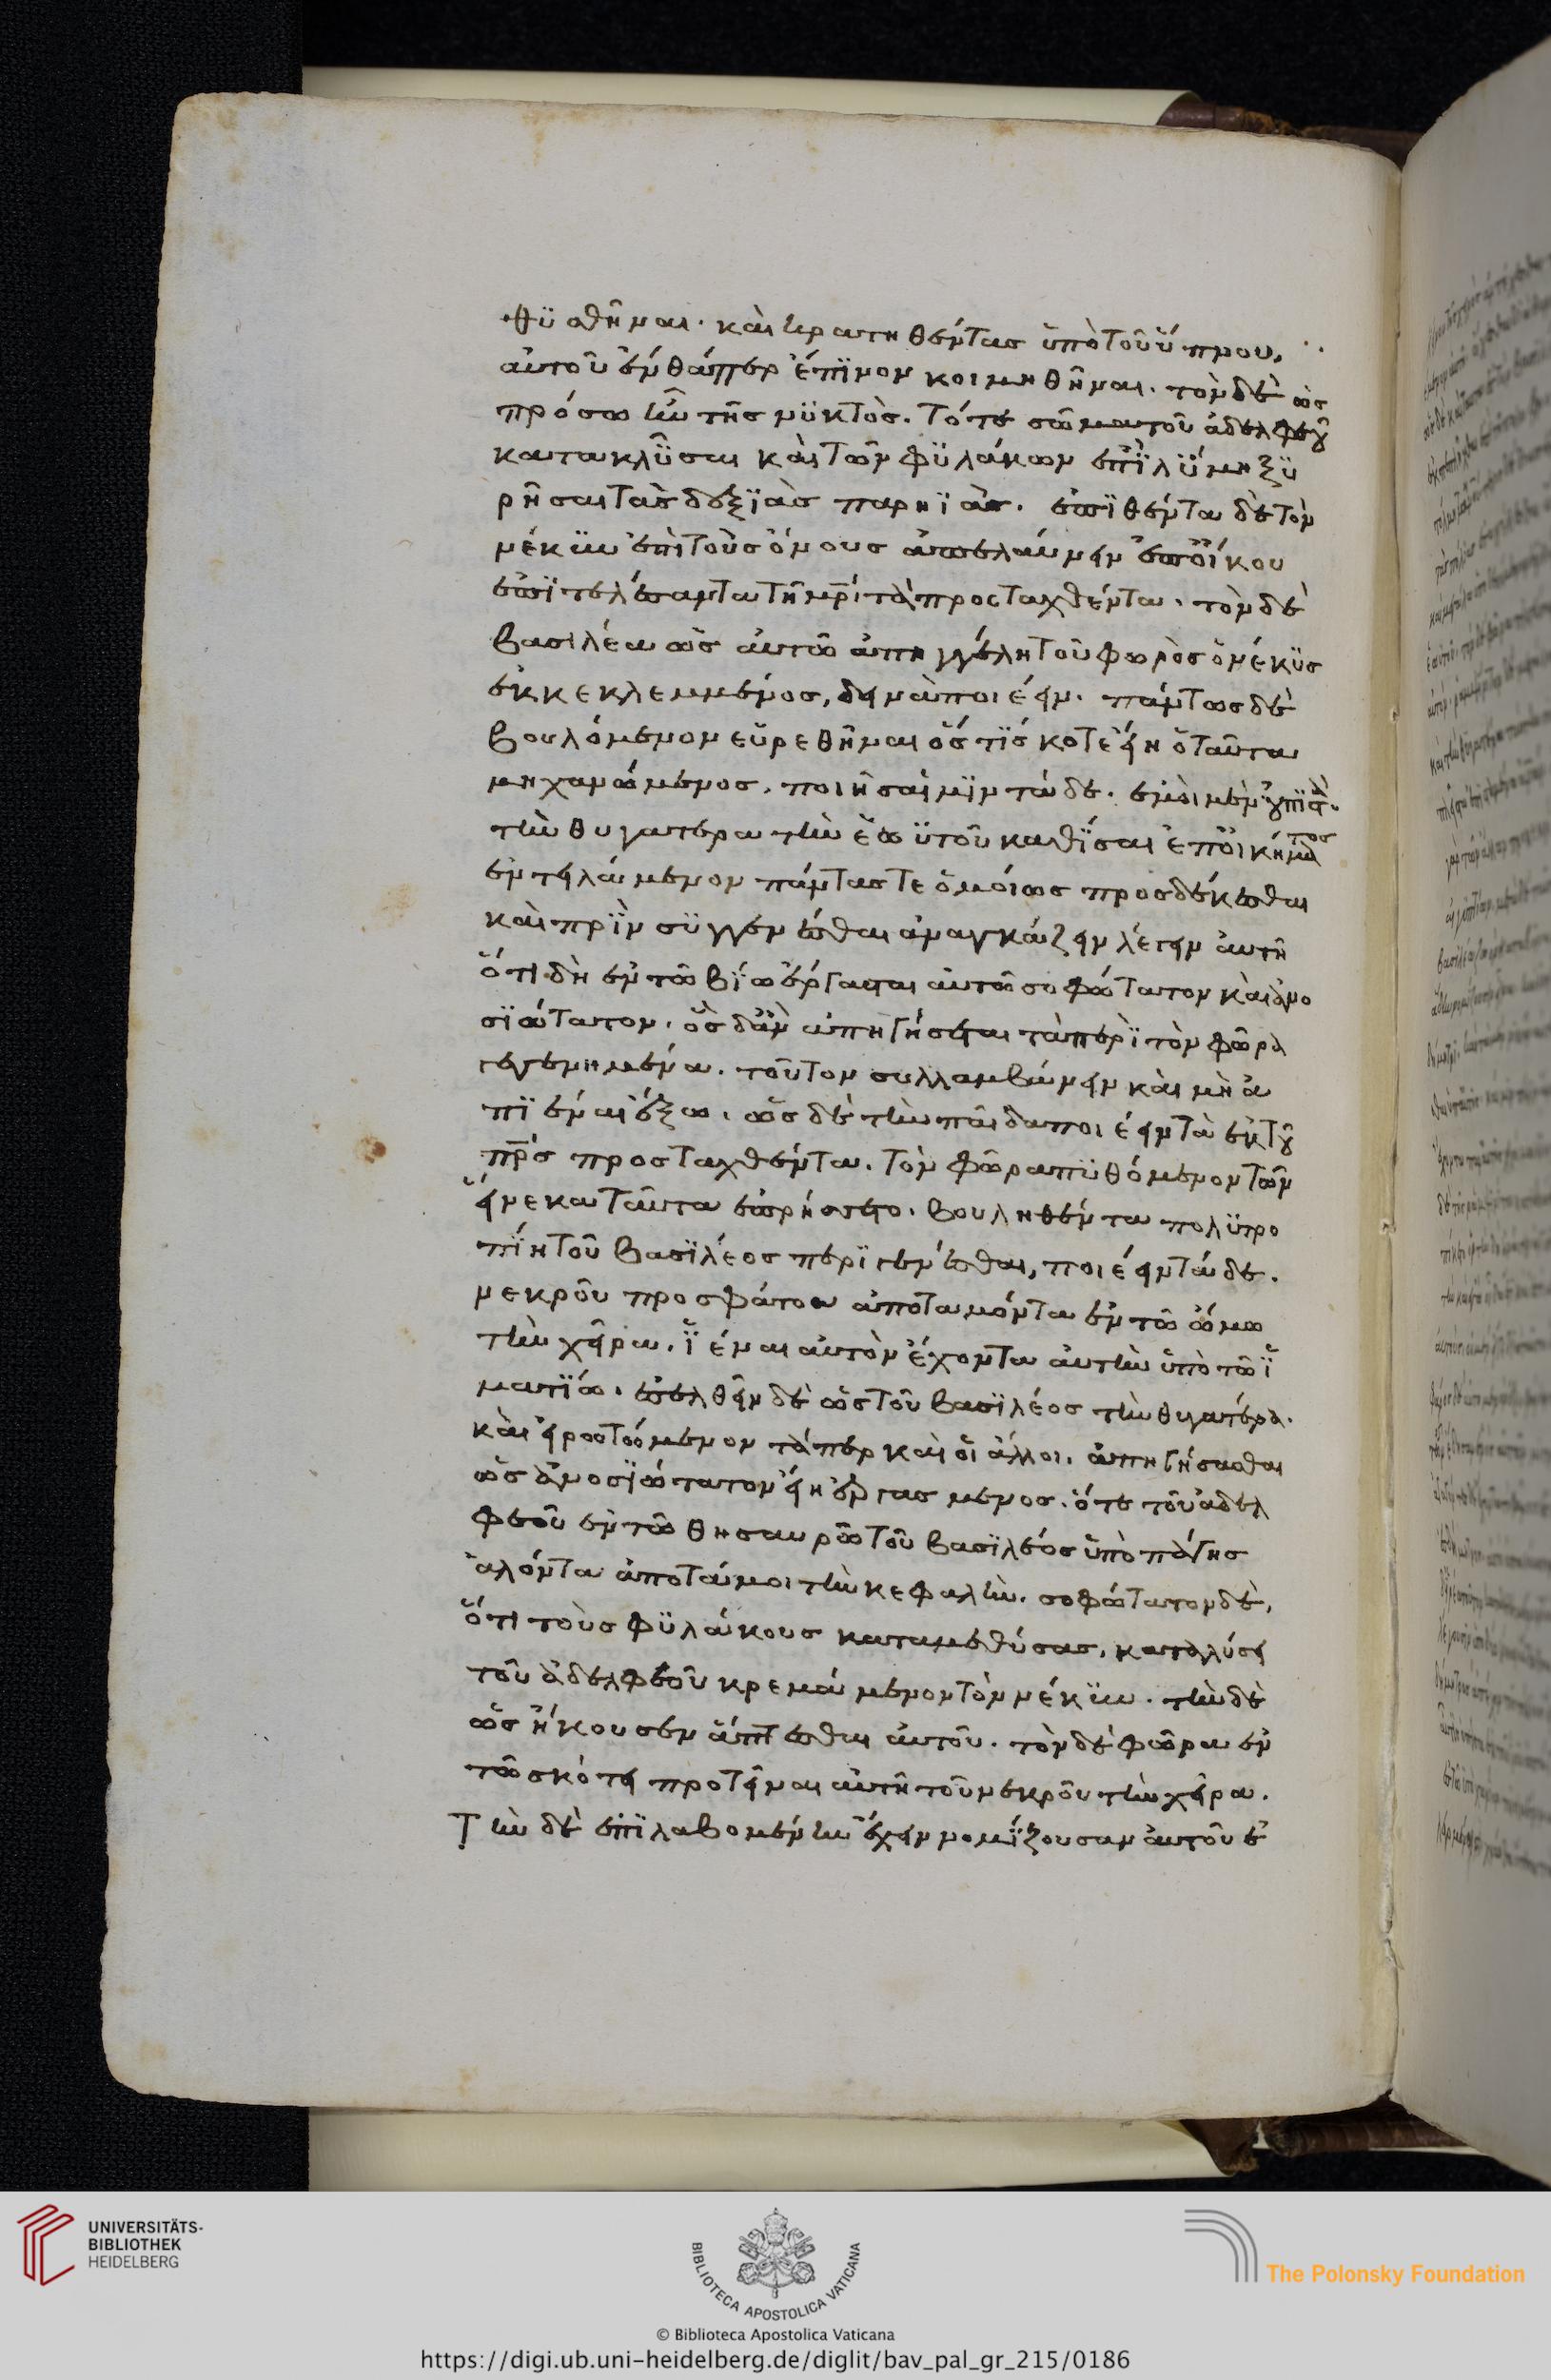 θυσθῆναι· καὶ κρατηθέντας ὑπὸ τοῦ ὕπνου,
αὐτοῦ ἔνθαπερ ἔπινον κοιμηθῆναι. τὸν δὲ ὡς
πρόσω ἦν τῆς νυκτὸς. τό τε σῶμα τοῦ ἀδελφεοῦ
καταλῦσαι καὶ τῶν φϋλάκων ἐπὶ λύμη ξϋ
ρῆσαι τὰς δεξϊὰς παρηϊάς. ἐπϊθέντα δὲ τὸν
νέκϋν ἐπὶ τοὺς ὄνους ἀπελαύνειν ἐπ οἴκου
ἐπϊτελέσαντα τῆ μρὶ τὰ προσταχθέντα. τὸν δὲ
βασιλέα ὡς αὐτῶ ἀπηγγέλη τοῦ φωρὸς ὁ νέκϋς
ἐκκεκλεμμένος, δεινὰ ποιέειν. πάντως δὲ
βουλόμενον εὑρεθῆναι ὅστϊς κοτὲ εἴη ὁ ταῦτα
μηχανώμενος. ποιῆσαί μϊν τάδε. ἐμοὶ μὲν οὐ πϊστὰ.
τὴν θυγατέρα τὴν ἑωϋτοῦ κατίσαι ἐπ οἰκήματος
ἐντειλάμενον πάντας τε ὁμοίως προσδέκεσθαι
καὶ πρὶν συγγενέσθαι ἀναγκάζειν λέγειν αὐτῆ
ὅ τι δὴ ἐν τῶ βίω ἔργασται αὐτῶ σοφώτατον καὶ ἀνο
σϊώτατον. ὃς δἂν ἀπηγήσεται τὰ περὶ τὸν φῶρα
γεγενημένα. τοῦτον συλλαμβάνειν καὶ μὴ ἀ
πϊέναι ἔξω. ὡς δὲ τὴν παῖδα ποιέειν τὰ ἐκ τοῦ
πρσ προσταχθέντα. τὸν φῶρα πϋθόμενον τῶν
εἵνεκα ταῦτα ἐπρήσσετο. βουληθέντα πολϋτρο
πίη τοῦ βασϊλέος περϊγενέσθαι, ποιέειν τάδε.
νεκροῦ προσφάτου ἀποταμόντα ἐν τῶ ὤμω
τὴν χεῖρα. ἰέναι αὐτὸν ἔχοντα αὐτὴν ὑπὸ τῶ ἱ
ματϊω. ἐσελθεῖν δὲ ὡς τοῦ βασϊλέος τὴν θυγατέρα.
καὶ εἰρωτώμενον τάπερ καὶ οἱ ἄλλοι. ἀπηγήσασθαι
ὡς ἀνοσϊώτατον εἴη ἐργασμένος. ὅτε τοῦ ἀδελ
φεοῦ ἐν τῶ θησαυρῶ τοῦ βασϊλέος ὑπὸ πάγης
ἁλόντα ἀποτάμοι τὴν κεφαλὴν. σοφώτατον δὲ,
ὅτι τοὺς φϋλάκους καταμεθύσας, καταλύσει
τοῦ ἀδελφεοῦ κρεμάμενον τὸν νέκϋν. τὴν δὲ
ὡς ἤκουσεν ἅπτεσθαι αὐτοῦ. τὸν δὲ φῶρα ἐν
τῶ σκότει προτεῖναι αὐτῆ τοῦ νεκροῦ τὴν χεῖρα.
Τὴν δὲ ἐπϊλαβομένην ἔχειν νομίζουσαν αὐτοῦ ἐ
UNIVERSITÄTS-
BIBLIOTHEK
HEIDELBERG
BIBLIOTECA APOSTOLICA VATICANA
The Polonsky Foundation
© Biblioteca Apostolica Vaticana
https://digi.ub.uni-heidelberg.de/diglit/bav_pal_gr_215/0186